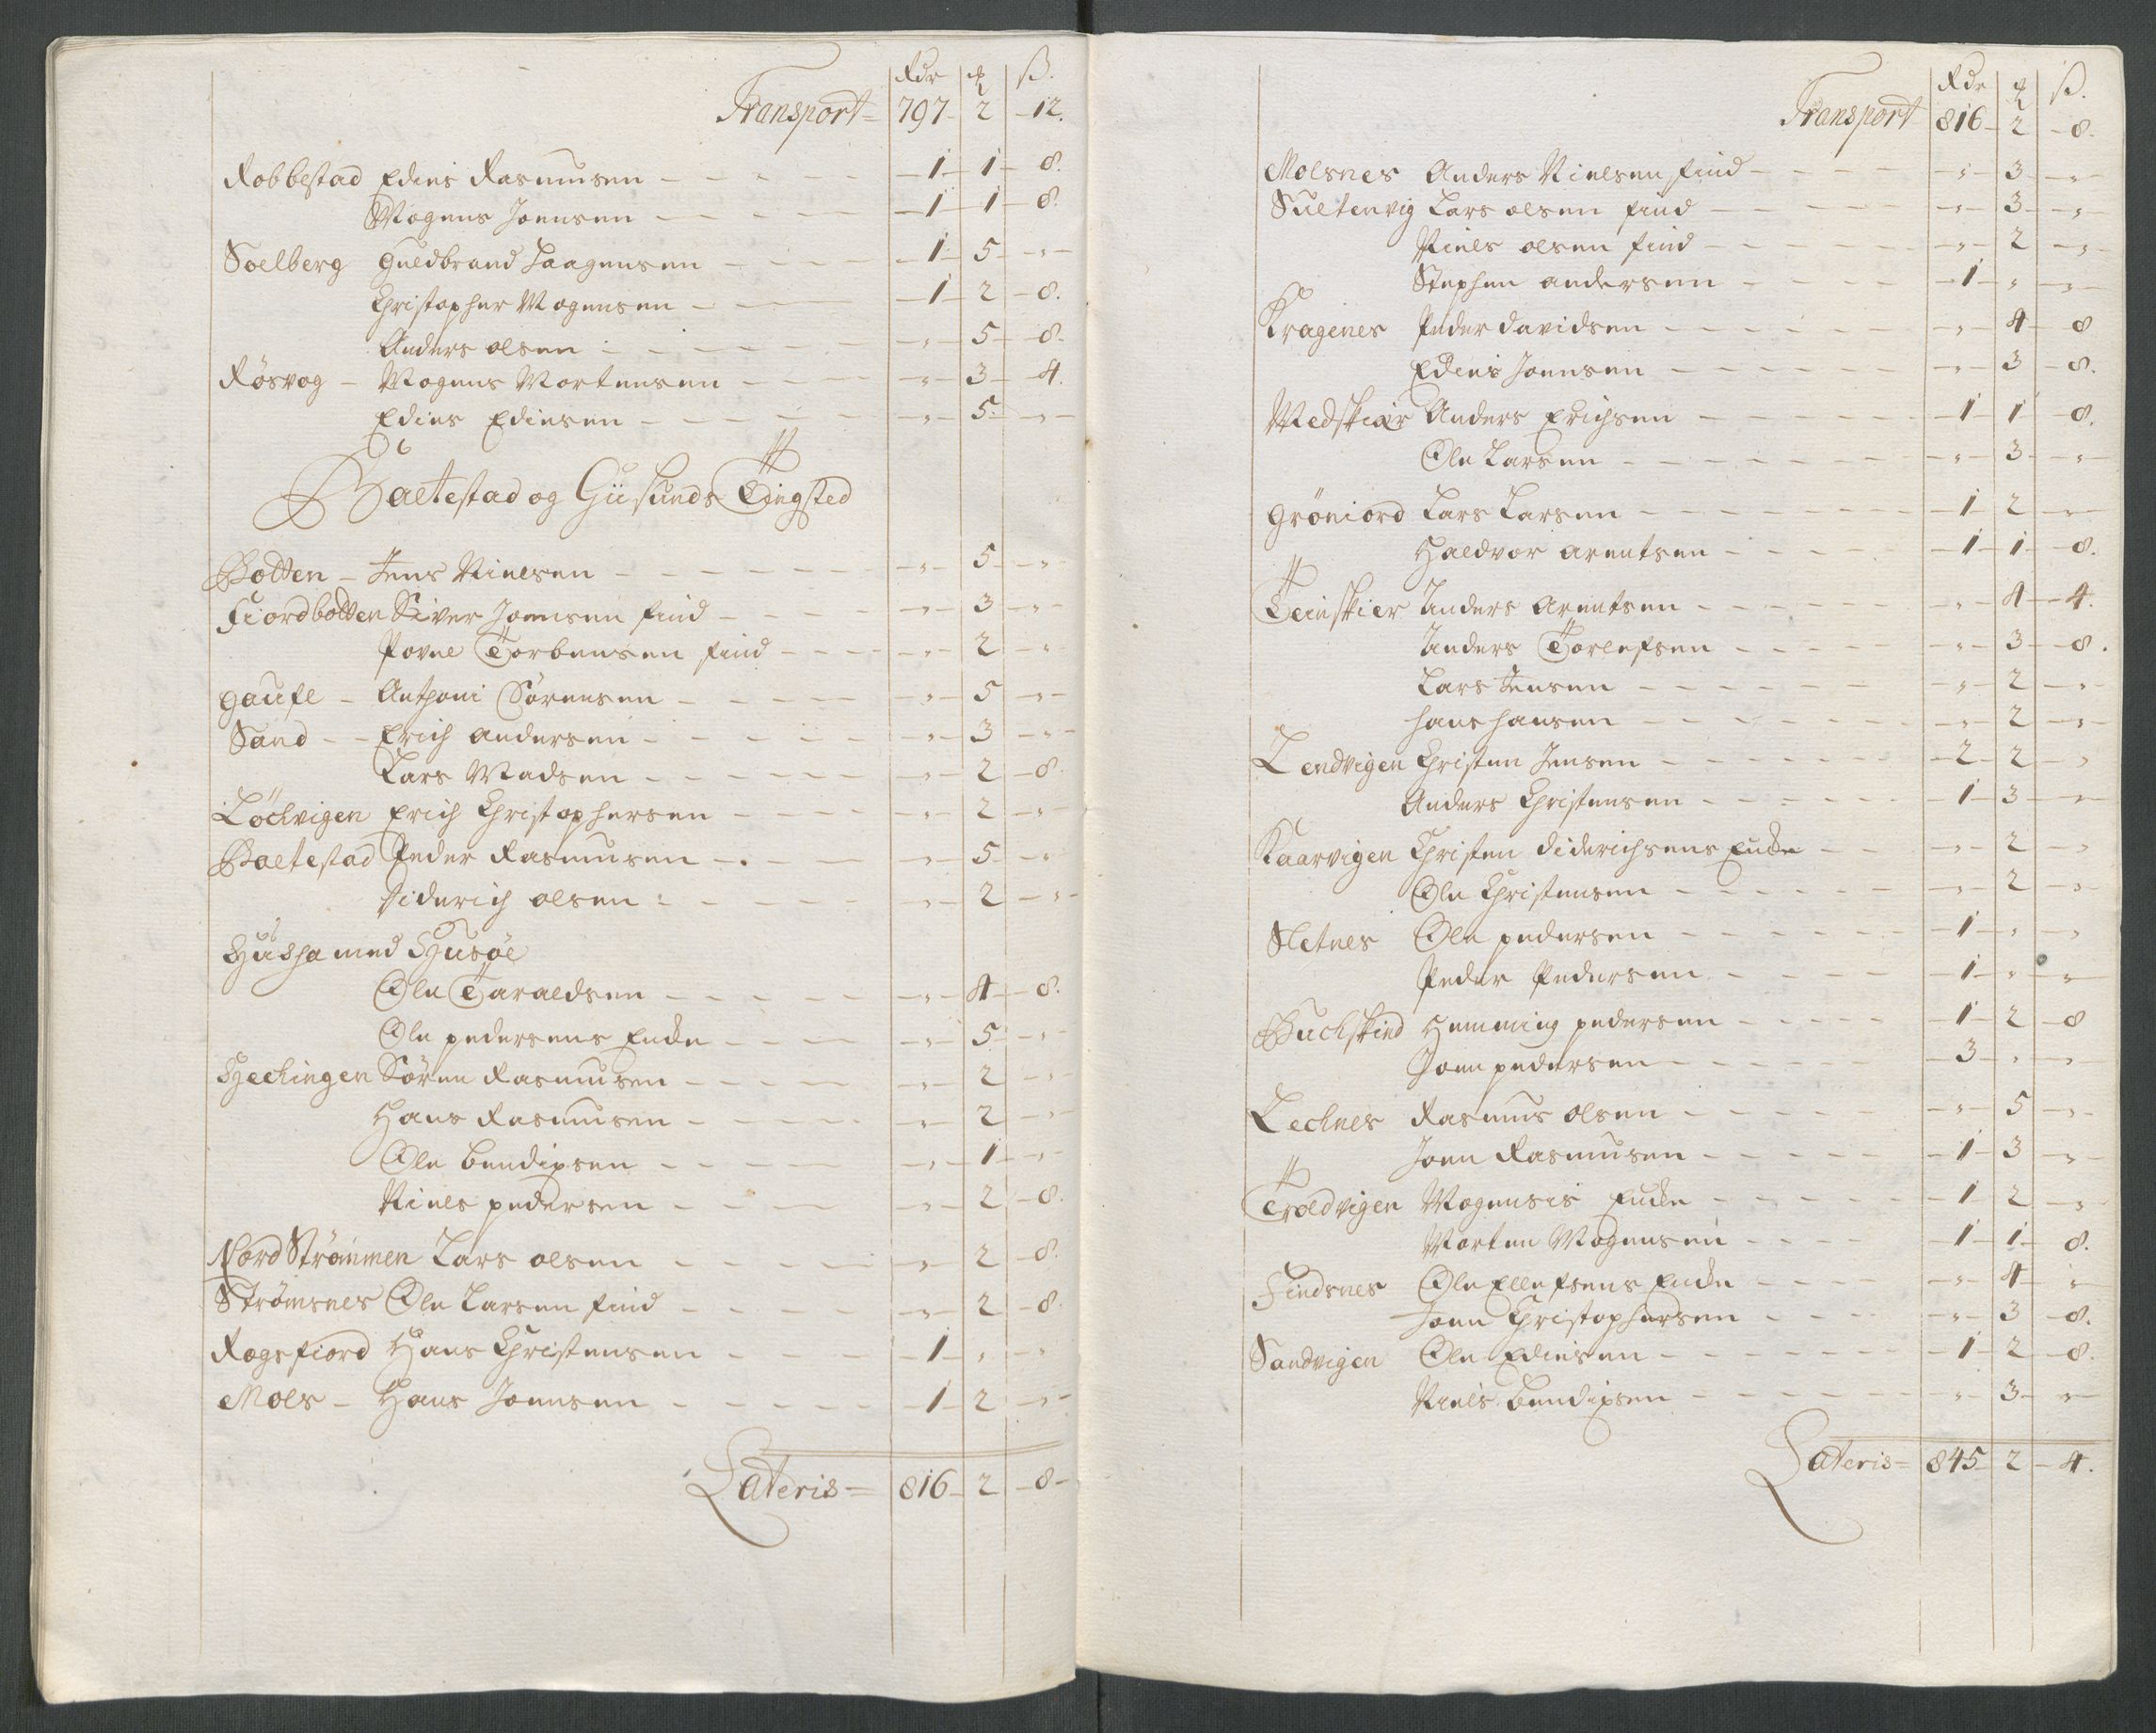 Rdr ꝟ ß.
Transport = 797 - 2 - 12.
Robbestad Edies Rasmusen - 1 - 1 - 8.
Mogens Joensen - 1 - 1 - 8.
Soelberg Guldbrand Laagensen - 1 - 5 - "
Christopher Mogensen - 1 - 2 - 8.
Anders olsen - " - 5 - 8.
Røsvog - Mogens Mortensen - " - 3 - 4.
Edies Ediesen - " - 5 - "
Baltestad og Giisunds Tingsted
Botten - Jens Nielsen - " - 5 - "
Fiordbotten Siver Joensen find - " - 3 - "
Povel Torbensen find - " - 2 - "
gaufl - Anthoni Sørensen - " - 5 - "
Sand - Erich Andersen - " - 3 - "
Lars Madsen - " - 2 - 8.
Löchvigen Erich Christophersen - " - 2 - "
Baltestad Peder Rasmusen - " - 5 - "
Diderich olsen - " - 2 - "
Husha med Husøe
Ole Taraldsen - " - 4 - 8.
Ole pedersens Encke - " - 5 - "
Hechingen Sören Rasmusen - " - 2 - "
Hans Rasmusen - " - 2 - "
Ole Bendixsen - " - 1 - "
Niels pedersen - " - 2 - 8.
Nord Strømmen Lars olsen - " - 2 - 8.
Strömsnes Ole Larsen find - " - 2 - 8
Rogsfiord Hans Christensen - 1 - " - "
Mols - Hans Joensen - 1 - 2 - "
Lateris = 816 - 2 - 8 -
Rdr ꝟ ß.
Transport 816 - 2 - 8.
Molsnes Anders Nielsen find - " - 3 - "
Sultenvig Lars olsen find - " - 3 - "
Niels olsen find - " - 2 - "
Stephen andersen - 1 - " - "
Kragenes Peder Davidsen - " - 4 - 8
Edies Joensen - " - 3 - 8.
Medskiær Anders Erichsen - 1 - 1 - 8.
Ole Larsen - " - 3 - "
Gröniord Lars Larsen - 1 - 2 - "
Haldvor arentsen - 1 - 1 - 8.
Teinskier Anders Arentsen - " - 4 - 4.
Anders Torlefsen - " - 3 - 8.
Lars Jensen - " - 2 - "
hans hansen - " - 2 - "
Lendvigen Christen Jensen - 2 - 2 - "
Anders Christensen - 1 - 3 - "
Kaarvigen Christen diderichsens Encke - " - 2 - "
Ole Christensen - " - 2 - "
Sletnes Ole pedersen - 1 - " - "
Peder Pedersen - 1 - " - "
Buchskind Hemming pedersen - 1 - 2 - 8
Joen pedersen - 3 - " - "
Lechnes Rasmus olsen - " - 5 - "
Joen Rasmusen - 1 - 3 - "
Troldvigen Mogensis Encke - 1 - 2 - "
Morten Mogensen - 1 - 1 - 8.
Findsnes Ole Ellefsens Encke - " - 4 - "
Joen Christophersen - " - 3 - 8.
Sandvigen Ole Ediesen - 1 - 2 - 8.
Niels Bendixsen - " - 3 - "
Lateris = 845 - 2 - 4.